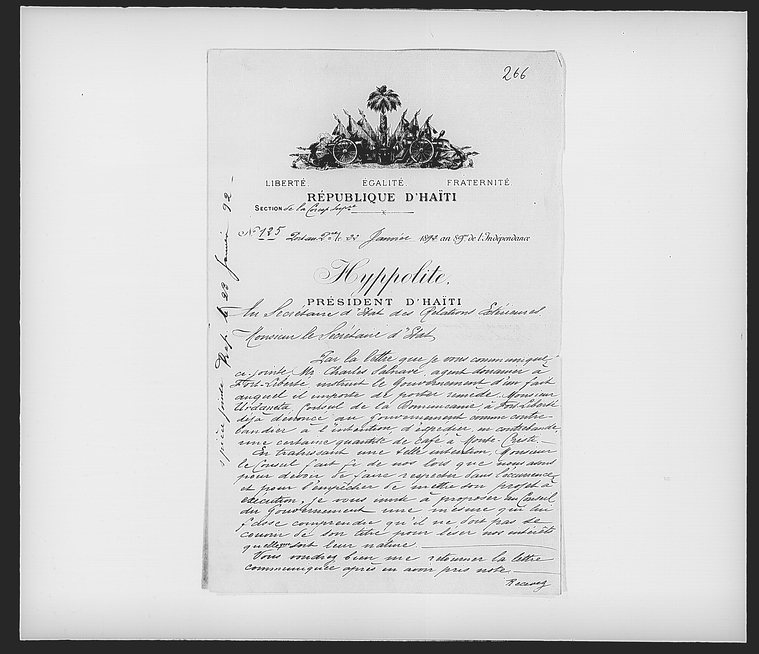 266
LIBERTÉ. ÉGALITÉ. FRATERNITÉ.
RÉPUBLIQUE D'HAÏTI
SECTION de la Corresp.
N° 125 Port au P. le 22 Janvier 1892 an 89e de l'Indépendance
Hyppolite,
PRÉSIDENT D'HAÏTI
Au Secrétaire d'Etat des Relations Extérieures
Monsieur le Secrétaire d'Etat,
Par la lettre que je vous communique
ci-jointe, Mr Charles Salnave, agent douanier à
Fort-Liberté instruit le Gouvernement d'un fait
auquel il importe de porter remède. Monsieur
Urdaneta Consul de la Dominicanie à Fort-Liberté
déjà dénoncé au Gouvernement comme contre-
bandier a l'intention d'expédier en contrebande
une certaine quantité de café à Monte-Christe.
En trahissant une telle intention, Monsieur
le Consul fait fi de nos lois que nous avons
pour devoir de faire respecter dans l'occurrence
et pour l'empêcher de mettre son projet à
exécution, je vous invite à proposer au Conseil
du Gouvernement une mesure qui lui
fasse comprendre qu'il ne doit pas se
couvrir de son titre pour léser nos intérêts
quelle que soit leur nature.
Vous voudrez bien me retourner la lettre
communiquée après en avoir pris note.
Recevez
1 pièce jointe Rép. le 23 Janvier 92